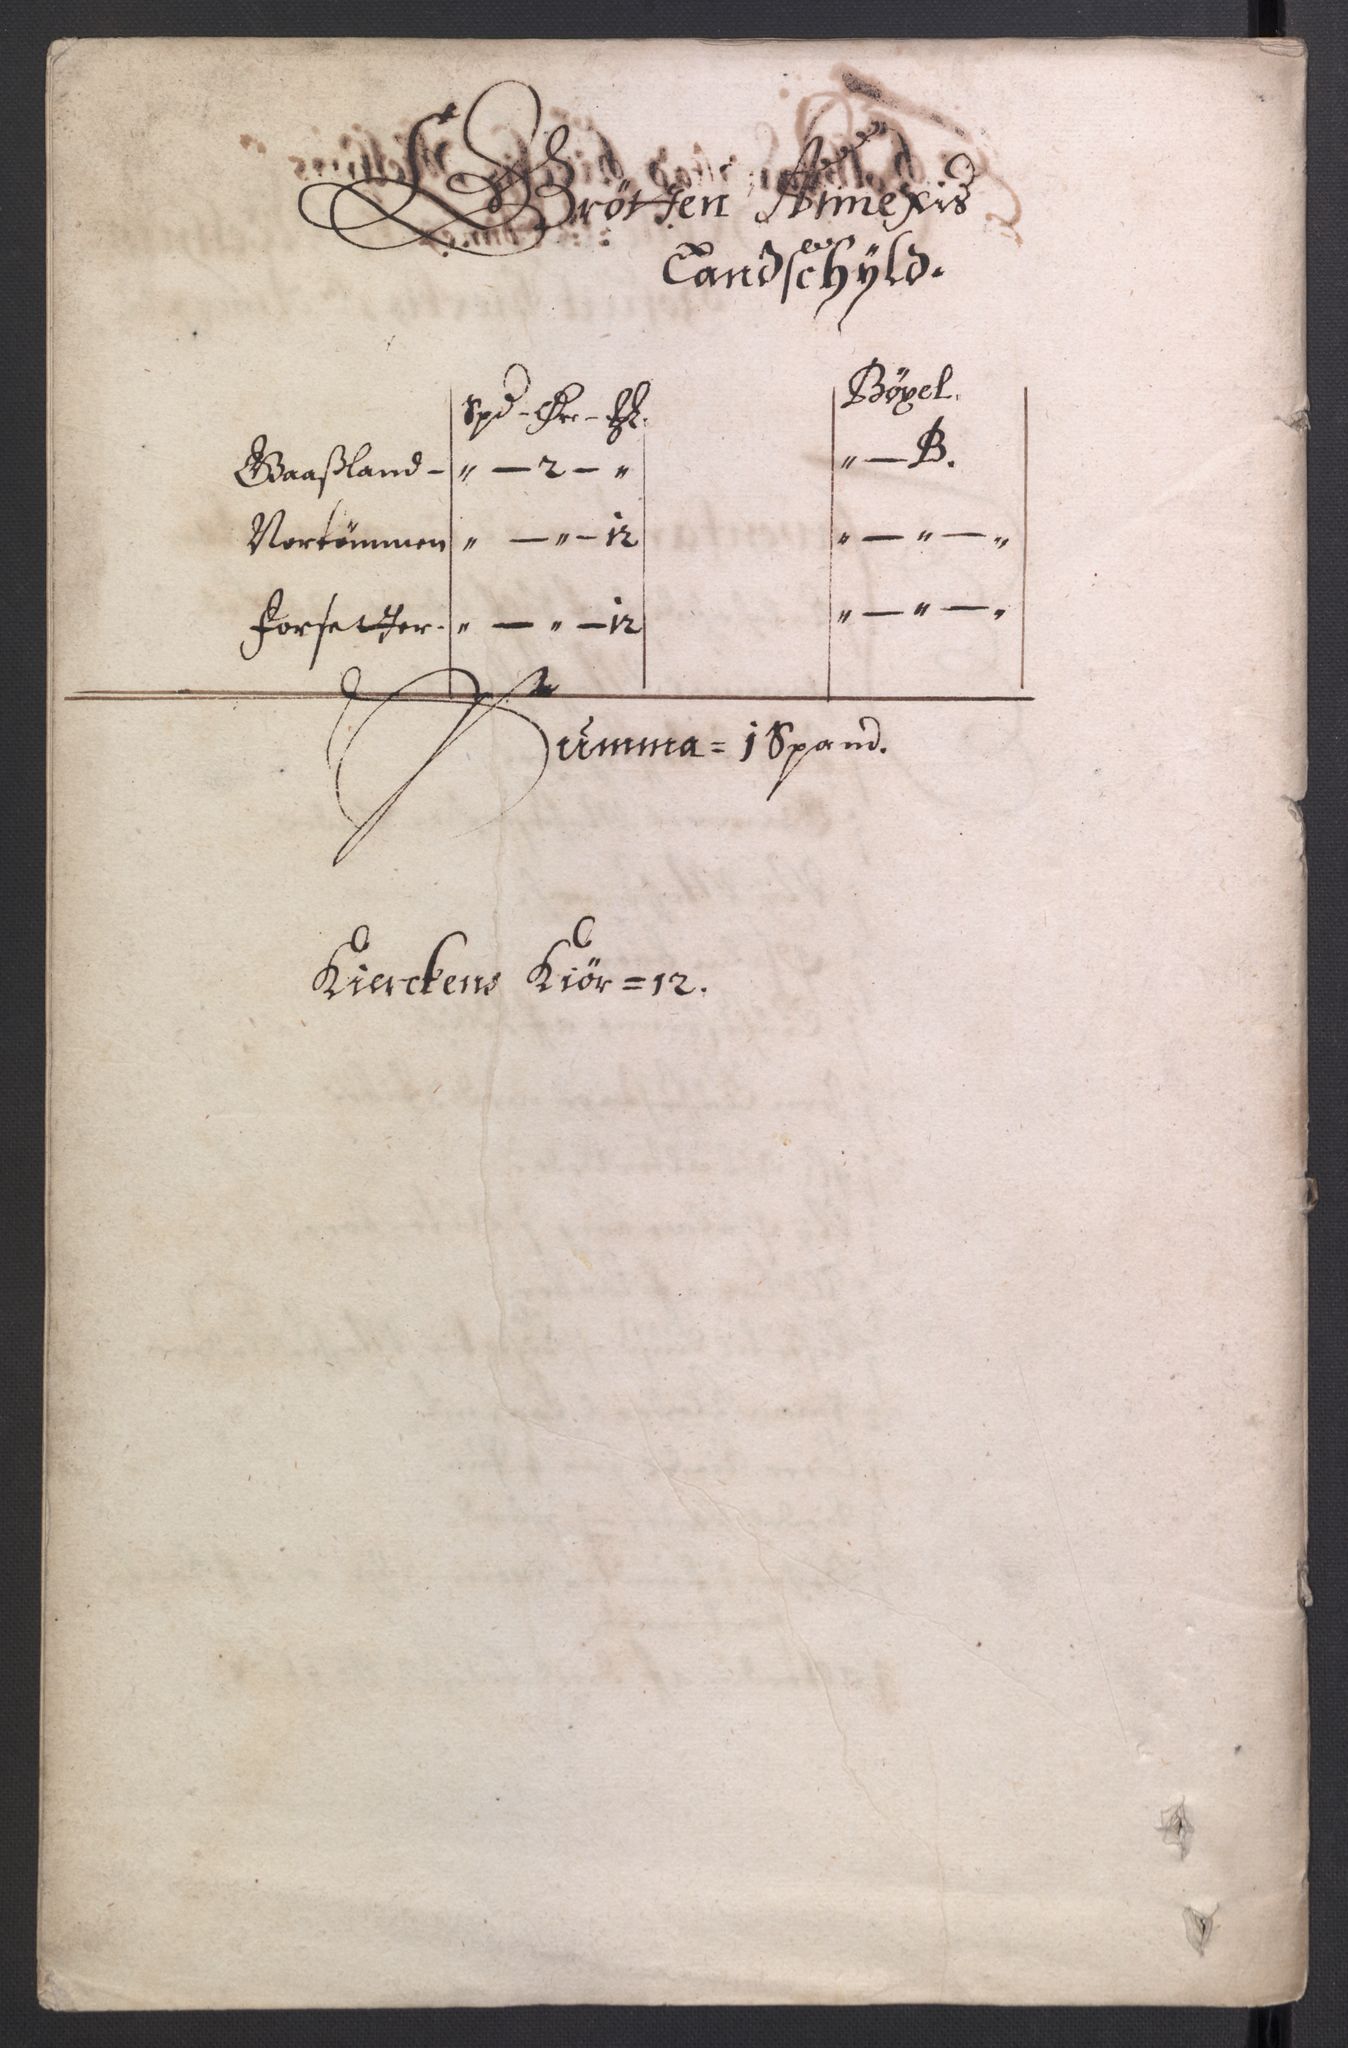 Grötten Annexis
Landschÿld.
Spd - Øre - 
Böxel.
Gaaßland - " — 2 — " " — B.
Nertömmen " — " — 12 " — " — "
Forsetter - " — " — 12 " — " — "
Summa = 1 Spand.
Kierckens Kiör = 12.